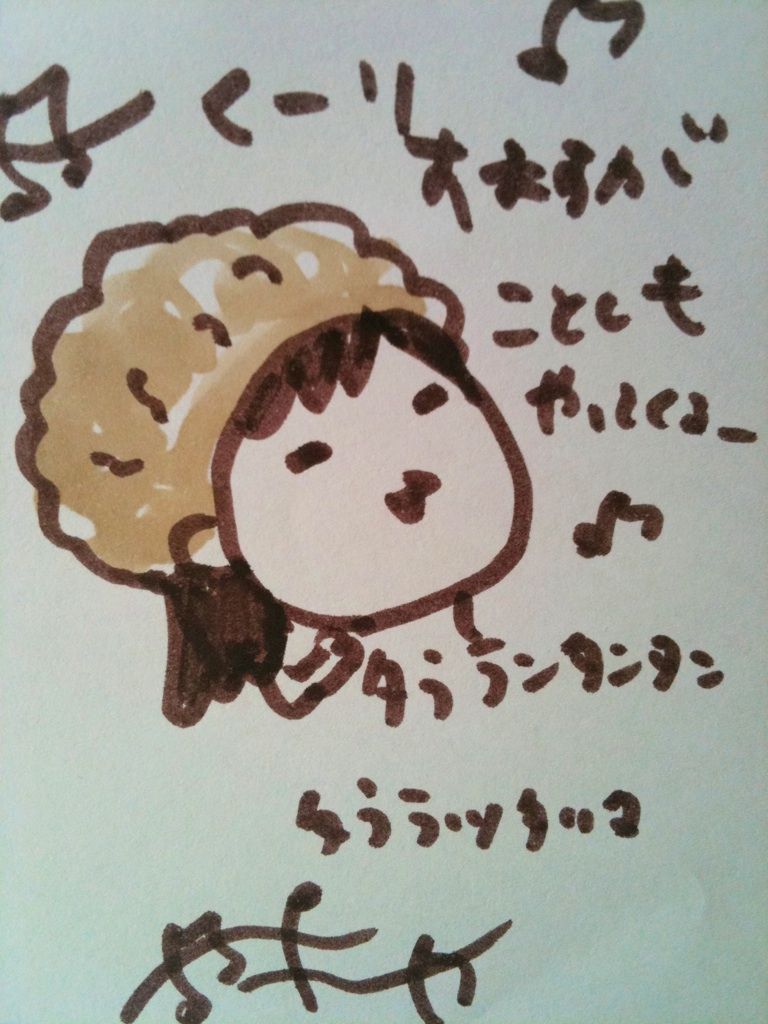 くーり
すますが
ことしも
やってくるー
タラランタンタン
タララッタッタ